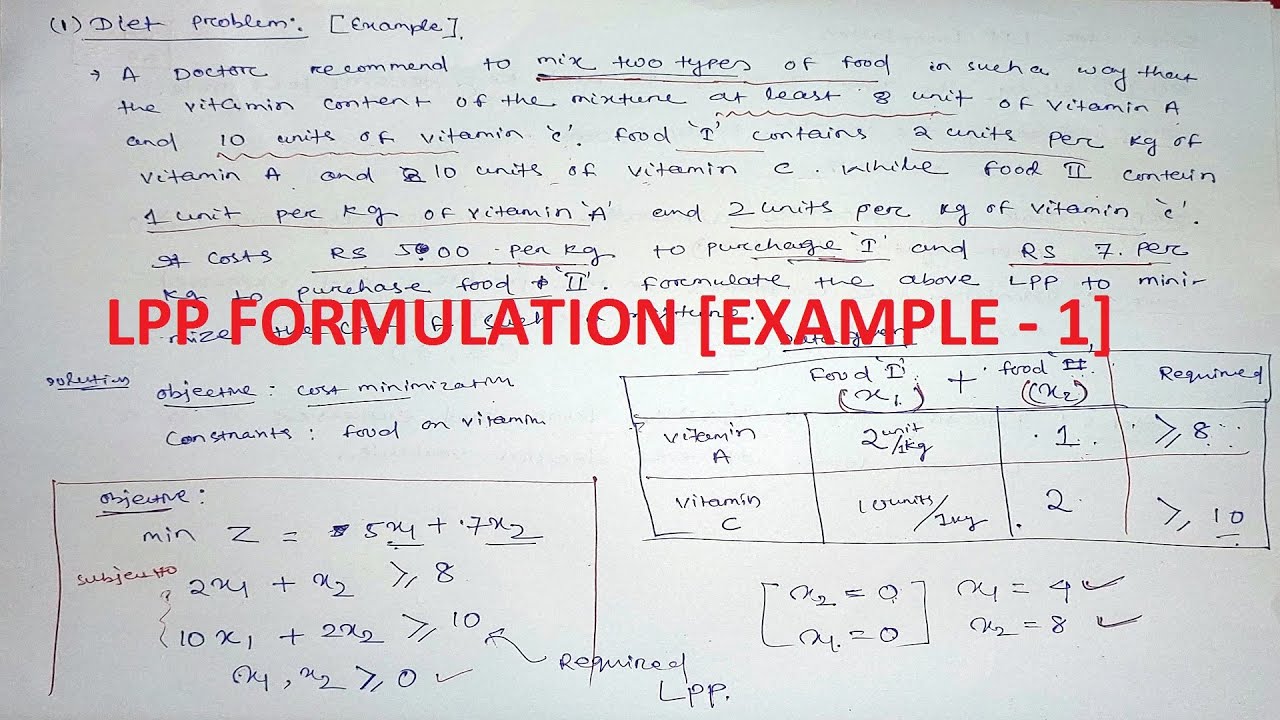 (1) Diet problem:. [Example].
→ A Doctorc recommend to mix two types of food in such a way that
the vitamin content of the mixture at least 8 unit of vitamin A
and 10 units of vitamin 'c'. food 'I' contains 2 units per kg of
vitamin A and 10 units of vitamin c. while food II contein
1 unit per kg of vitamin 'A' and 2 units per kg of vitamin 'c'.
It costs RS 5.00 per kg to purchage 'I' and RS 7. per
kg to purchase food 'II'. formulate the above LPP to mini-
LPP FORMULATION [EXAMPLE - 1]
solution
objective : cost minimization
constraints : food on vitamin
food 'I' + food 'II' Required
(x1) (x2)
vitamin A 2 unit/1kg 1 ≥ 8
vitamin C 10 units/1kg 2 ≥ 10
objective :
min Z = 5x1 + 7x2
subject to
2x1 + x2 ≥ 8
10x1 + 2x2 ≥ 10
x1, x2 ≥ 0
Required
LPP.
x2 = 0 x1 = 4
x1 = 0 x2 = 8